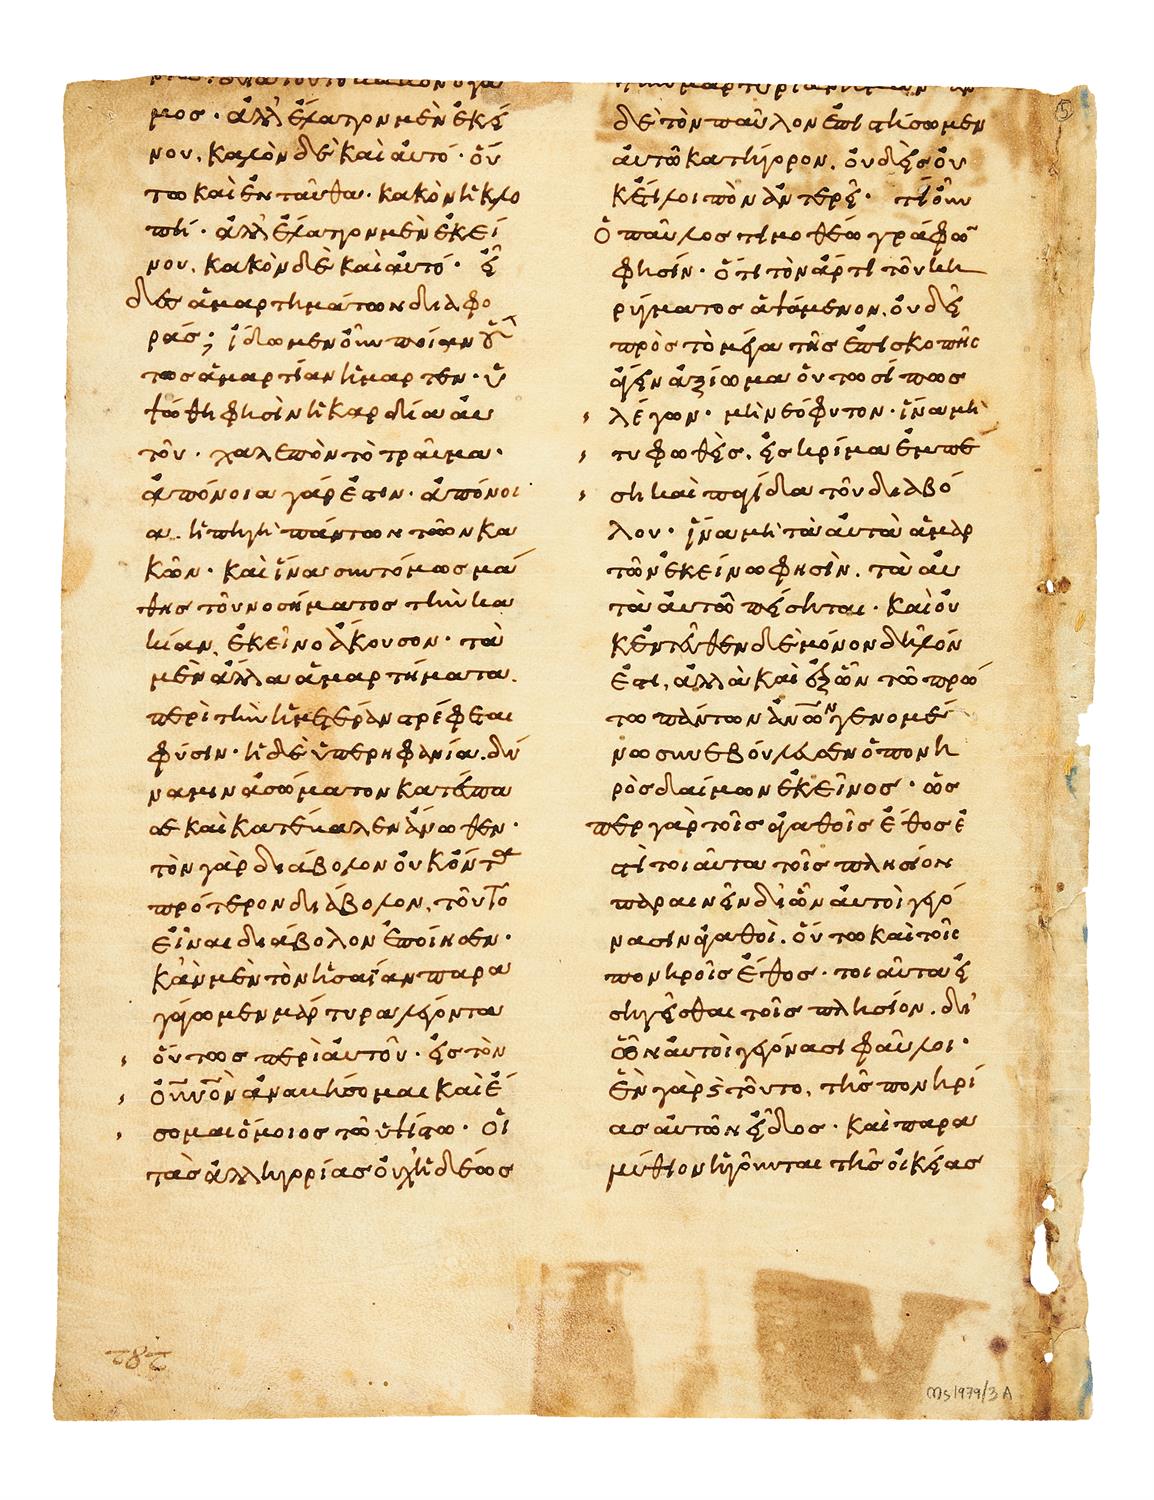 μος · ἀλλ' ἔλαττον μὲν ἐκεί
νου, καλὸν δὲ καὶ αὐτό · οὕ
τω καὶ ἐνταῦθα · κακὸν ἡ κλο
πή · ἀλλ' ἔλαττον μὲν ἐκεί
νου, κακὸν δὲ καὶ αὐτό · εἶ
δες ἁμαρτημάτων διαφο
ράς; ἴδωμεν οὖν ποίαν οὗ
τος ἁμαρτίαν ἥμαρτεν · ὑ
ψώθη φησὶν ἡ καρδία αὐ
τοῦ · χαλεπὸν τὸ τραῦμα ·
ἀπόνοια γάρ ἐστιν · ἀπόνοι
α, ἡ πηγὴ πάντων τῶν κα
κῶν · καὶ ἵνα συντόμως μά
θης τοῦ νοσήματος τὴν κα
κίαν, ἐκεῖνο ἄκουσον · τὰ
μὲν ἄλλα ἁμαρτήματα,
περὶ τὴν ἡμετέραν στρέφεται
φύσιν · ἡ δὲ ὑπερηφανία, δύ
ναμιν ἀσώματον κατέσπα
σε καὶ κατέβαλεν ἄνωθεν ·
τὸν γὰρ διάβολον οὐκ ὄντα
πρότερον διάβολον, τοῦτο
εἶναι διάβολον ἐποίησεν ·
κἂν μὲν τὸν ἡσαΐαν παρα
γάγωμεν μάρτυρα λέγοντα
οὕτως περὶ αὐτοῦ · εἰς τὸν
οὐνὸν ἀναβήσομαι καὶ ἔ
σομαι ὅμοιος τῷ ὑψίστῳ · οἱ
τὰς ἀλληγορίας οὐχ ἡδέως
τὴν μαρτυρίαν ἡμῶν
δὲ τὸν παῦλον ἐπιστήσωμεν
αὐτῷ κατήγορον, οὐδεὶς οὐ
κέτι λοιπὸν ἀντερεῖ · τί οὖν
ὁ παῦλος τιμοθέῳ γράφων
φησίν · ὅτι τὸν ἄρτι τοῦ κη
ρύγματος ἁψάμενον, οὐ δεῖ
πρὸς τὸ μέγα τῆς ἐπισκοπῆς
ἄγειν ἀξίωμα οὑτωσί πως
λέγων · μὴ νεόφυτον · ἵνα μὴ
τυφωθεὶς, εἰς κρίμα ἐμπέ
ση καὶ παγίδα τοῦ διαβό
λου · ἵνα μὴ τὰ αὐτὰ ἁμαρ
τῶν ἐκείνω φησὶν, τὰ αὐ
τὰ αὐτῷ πείσηται · καὶ οὐ
κ ἐντεῦθεν δὲ μόνον δῆλόν
ἐστι, ἀλλὰ καὶ ἐξ ὧν τῷ πρώ
τω πάντων ἀνων γενομέ
νω συνεβούλευσεν ὁ πονη
ρὸς δαίμων ἐκεῖνος · ὥς
περ γὰρ τοῖς ἀγαθοῖς ἔθος ἐ
στὶ τοιαῦτα τοῖς πλησίον
παραινεῖν δι' ὧν αὐτοὶ γεγό
νασιν ἀγαθοί, οὕτω καὶ τοῖς
πονηροῖς ἔθος · τοιαῦτα εἰ
σηγεῖσθαι τοῖς πλησίον, δι'
ὧν αὐτοὶ γεγόνασι φαῦλοι ·
ἓν γὰρ ϛ τοῦτο, τῆς πονηρί
ας αὐτῶν εἶδος · καὶ παρα
μύθιον ἡγοῦνται τῆς οἰκείας
Ms 1979/3 A
5